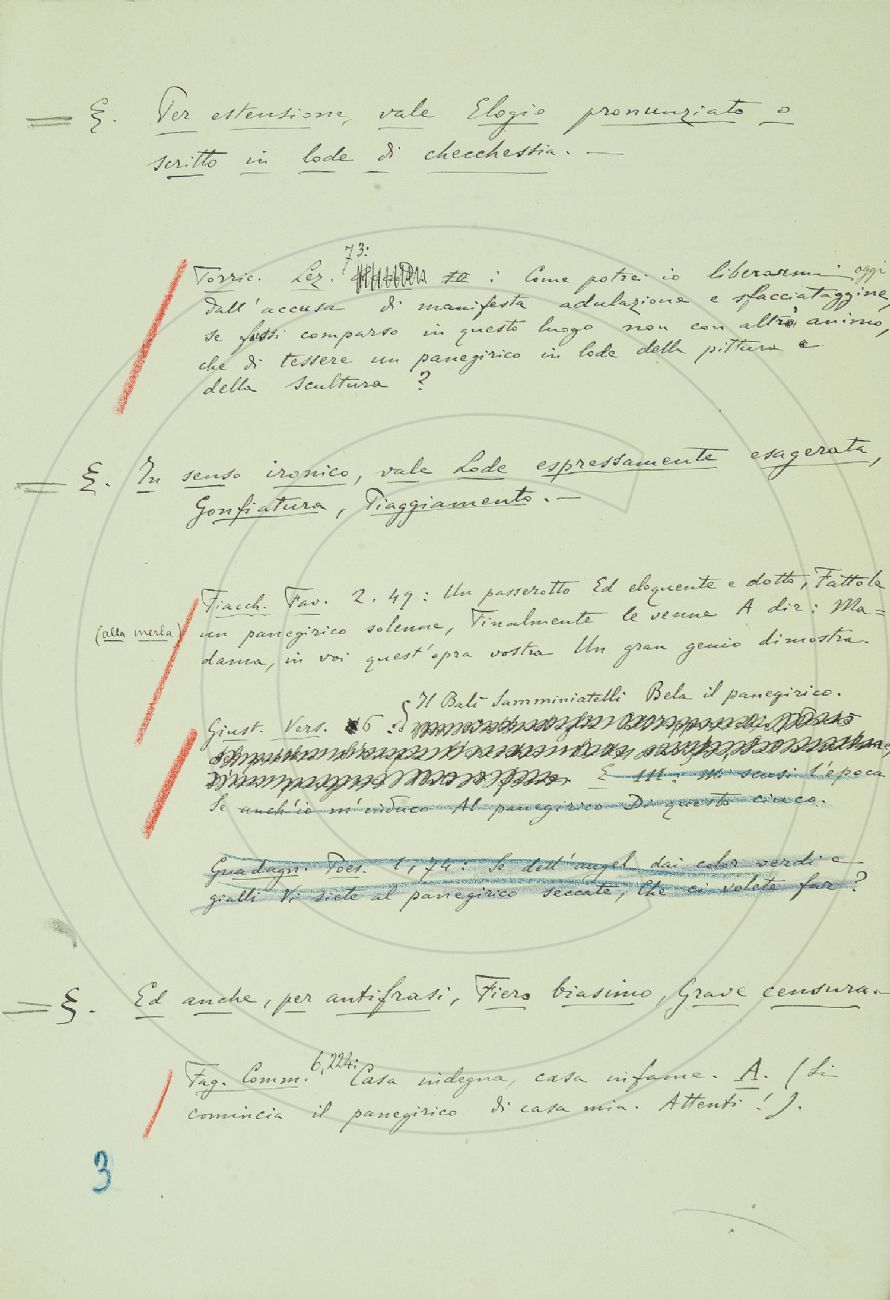 §. Per estensione, vale Elogio pronunziato o
scritto in lode di checchessia. —
73:
Torric. Lez. : Come potrei io liberarmi oggi
dall'accusa di manifesta adulazione e sfacciataggine,
se fossi comparso in questo luogo non con altro animo,
che di tessere un panegirico in lode della pittura e
della scultura?
§. In senso ironico, vale Lode espressamente esagerata,
Gonfiatura, Piaggiamento. —
Fiacch. Fav. 2. 49: Un passerotto Ed eloquente e dotto, Fattole
(alla merla) un panegirico solenne, Finalmente le venne A dir: Ma=
dama, in voi quest'opra vostra Un gran genio dimostra.
Il Balì Samminiatelli Bela il panegirico.
Giust. Vers. 6:
E 111: Mi scusi l'epoca
Se anch'io m'induco Al panegirico Di questo ciuco.
Guadagn. Poes. 1, 74: Se dell'augel dai color verdi e
gialli Vi siete al panegirico seccate, Che ci volete far?
§. Ed anche, per antifrasi, Fiero biasimo, Grave censura. —
6, 224:
Fag. Comm. Casa indegna, casa infame. A. (Si
comincia il panegirico di casa mia. Attenti!).
3